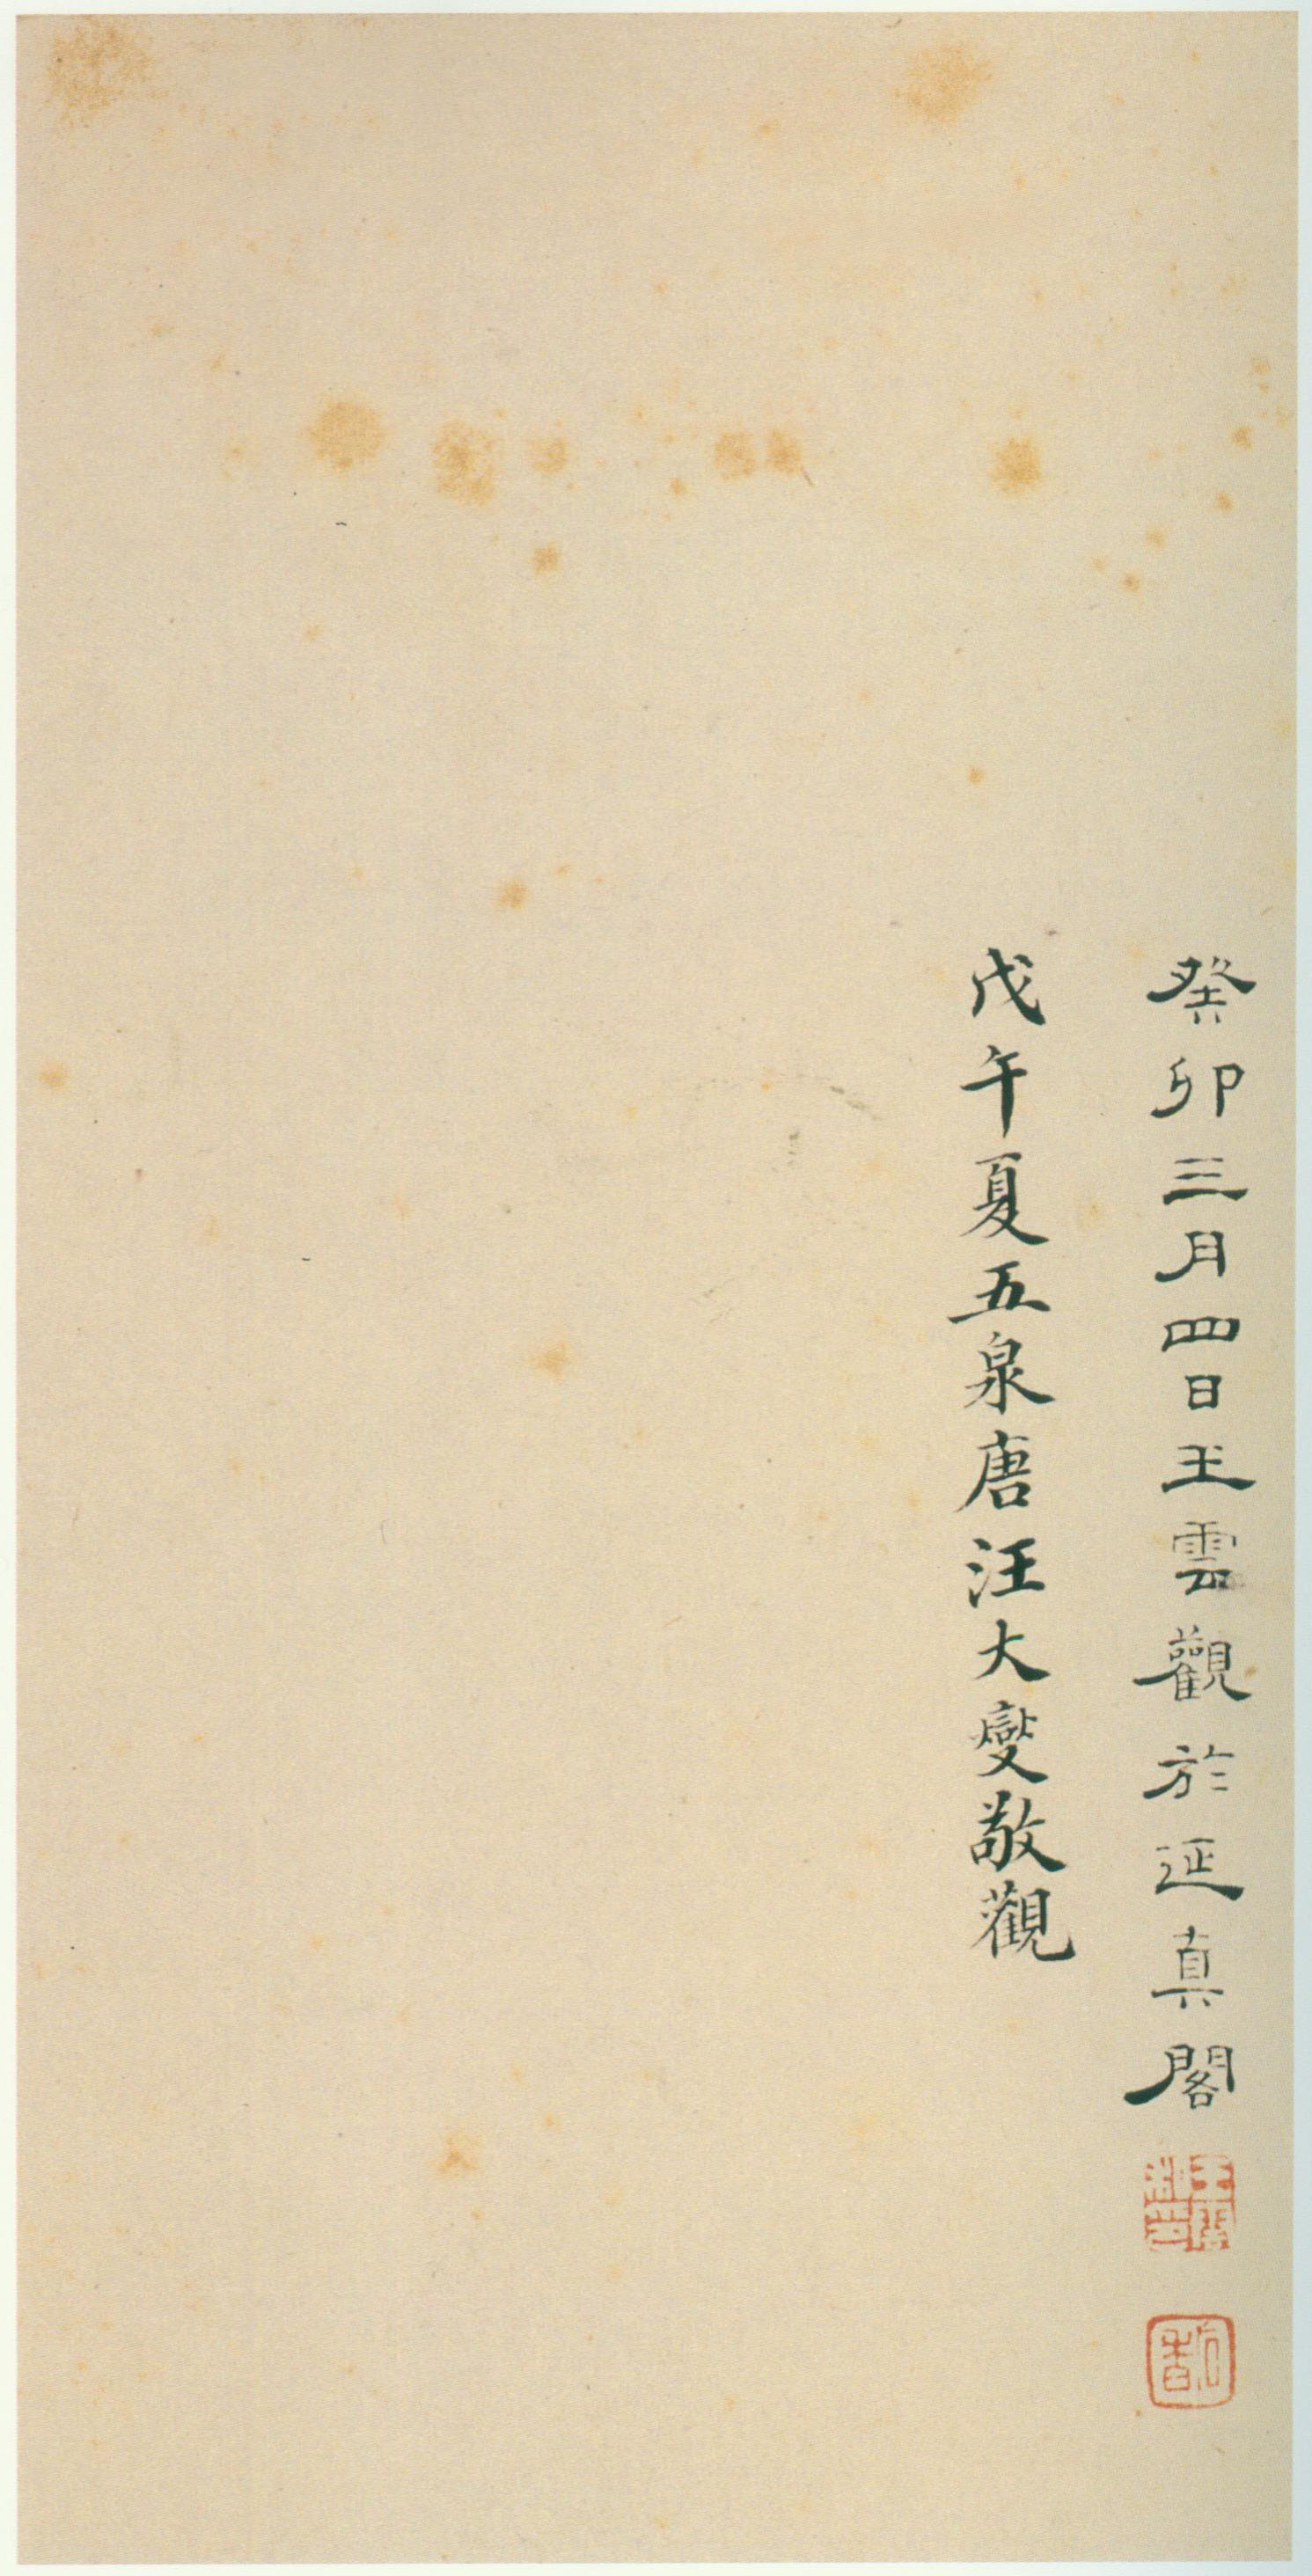 癸卯三月四日王雲觀於延真閣
戊午夏五泉唐汪大燮敬觀